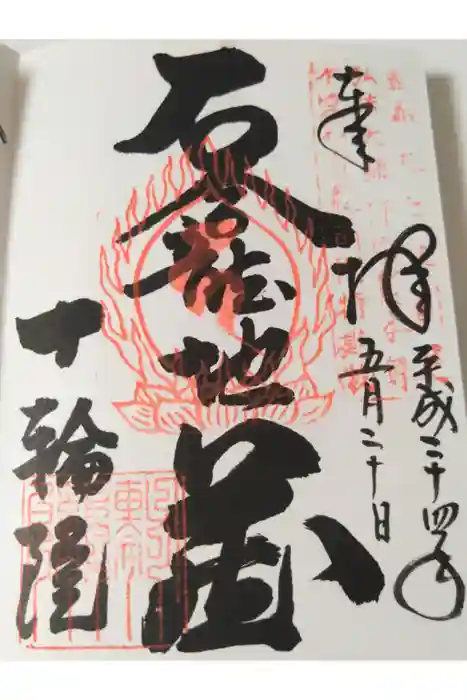 奉
拝
平成二十四年
五月二十日
石龕地蔵
十輪院